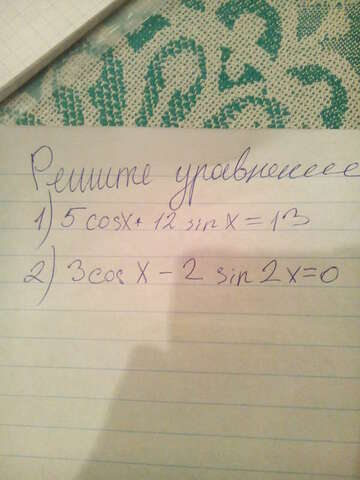 Решите уравнение
1) 5 cosx + 12 sin x = 13
2) 3 cos x - 2 sin 2x = 0